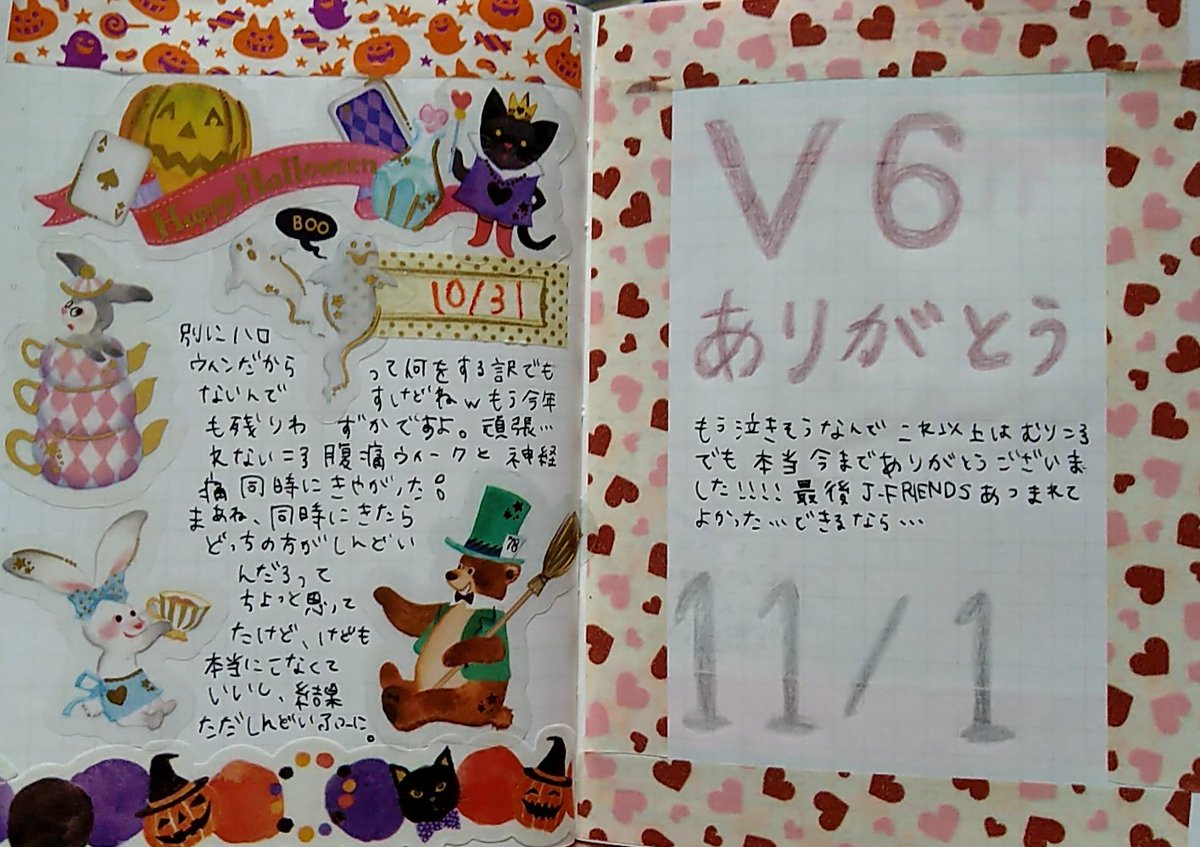 Happy Halloween
BOO
10/31
別にハロ
ウィンだからって何をする訳でも
ないんですけどねwもう今年
も残りわずかですよ。頑張…
れない=3 腹痛ウィークと神経
痛同時にきやがった。
まあね、同時にきたら
どっちの方がしんどい
んだろって
ちょっと思って
たけど、けども
本当にこなくて
いいし、結果
ただしんどい
V6
ありがとう
もう泣きそうなんでこれ以上はむり=3
でも本当今までありがとうございま
した!!!!最後J-FRIENDSあつまれて
よかった…できるなら…
11/1